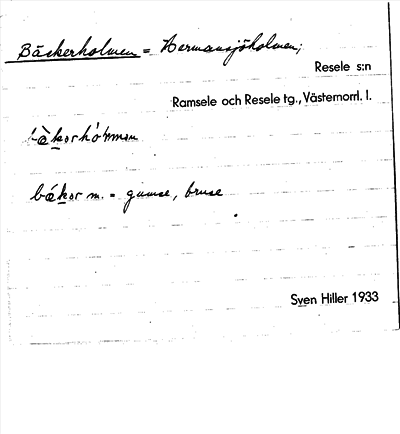 Bäckerholmen = Hermansjöholmen;
Resele s:n
Ramsele och Resele tg., Västernorrl. l.
bàkorhòrmen
bákor m. = gumse, bruse
Sven Hiller 1933